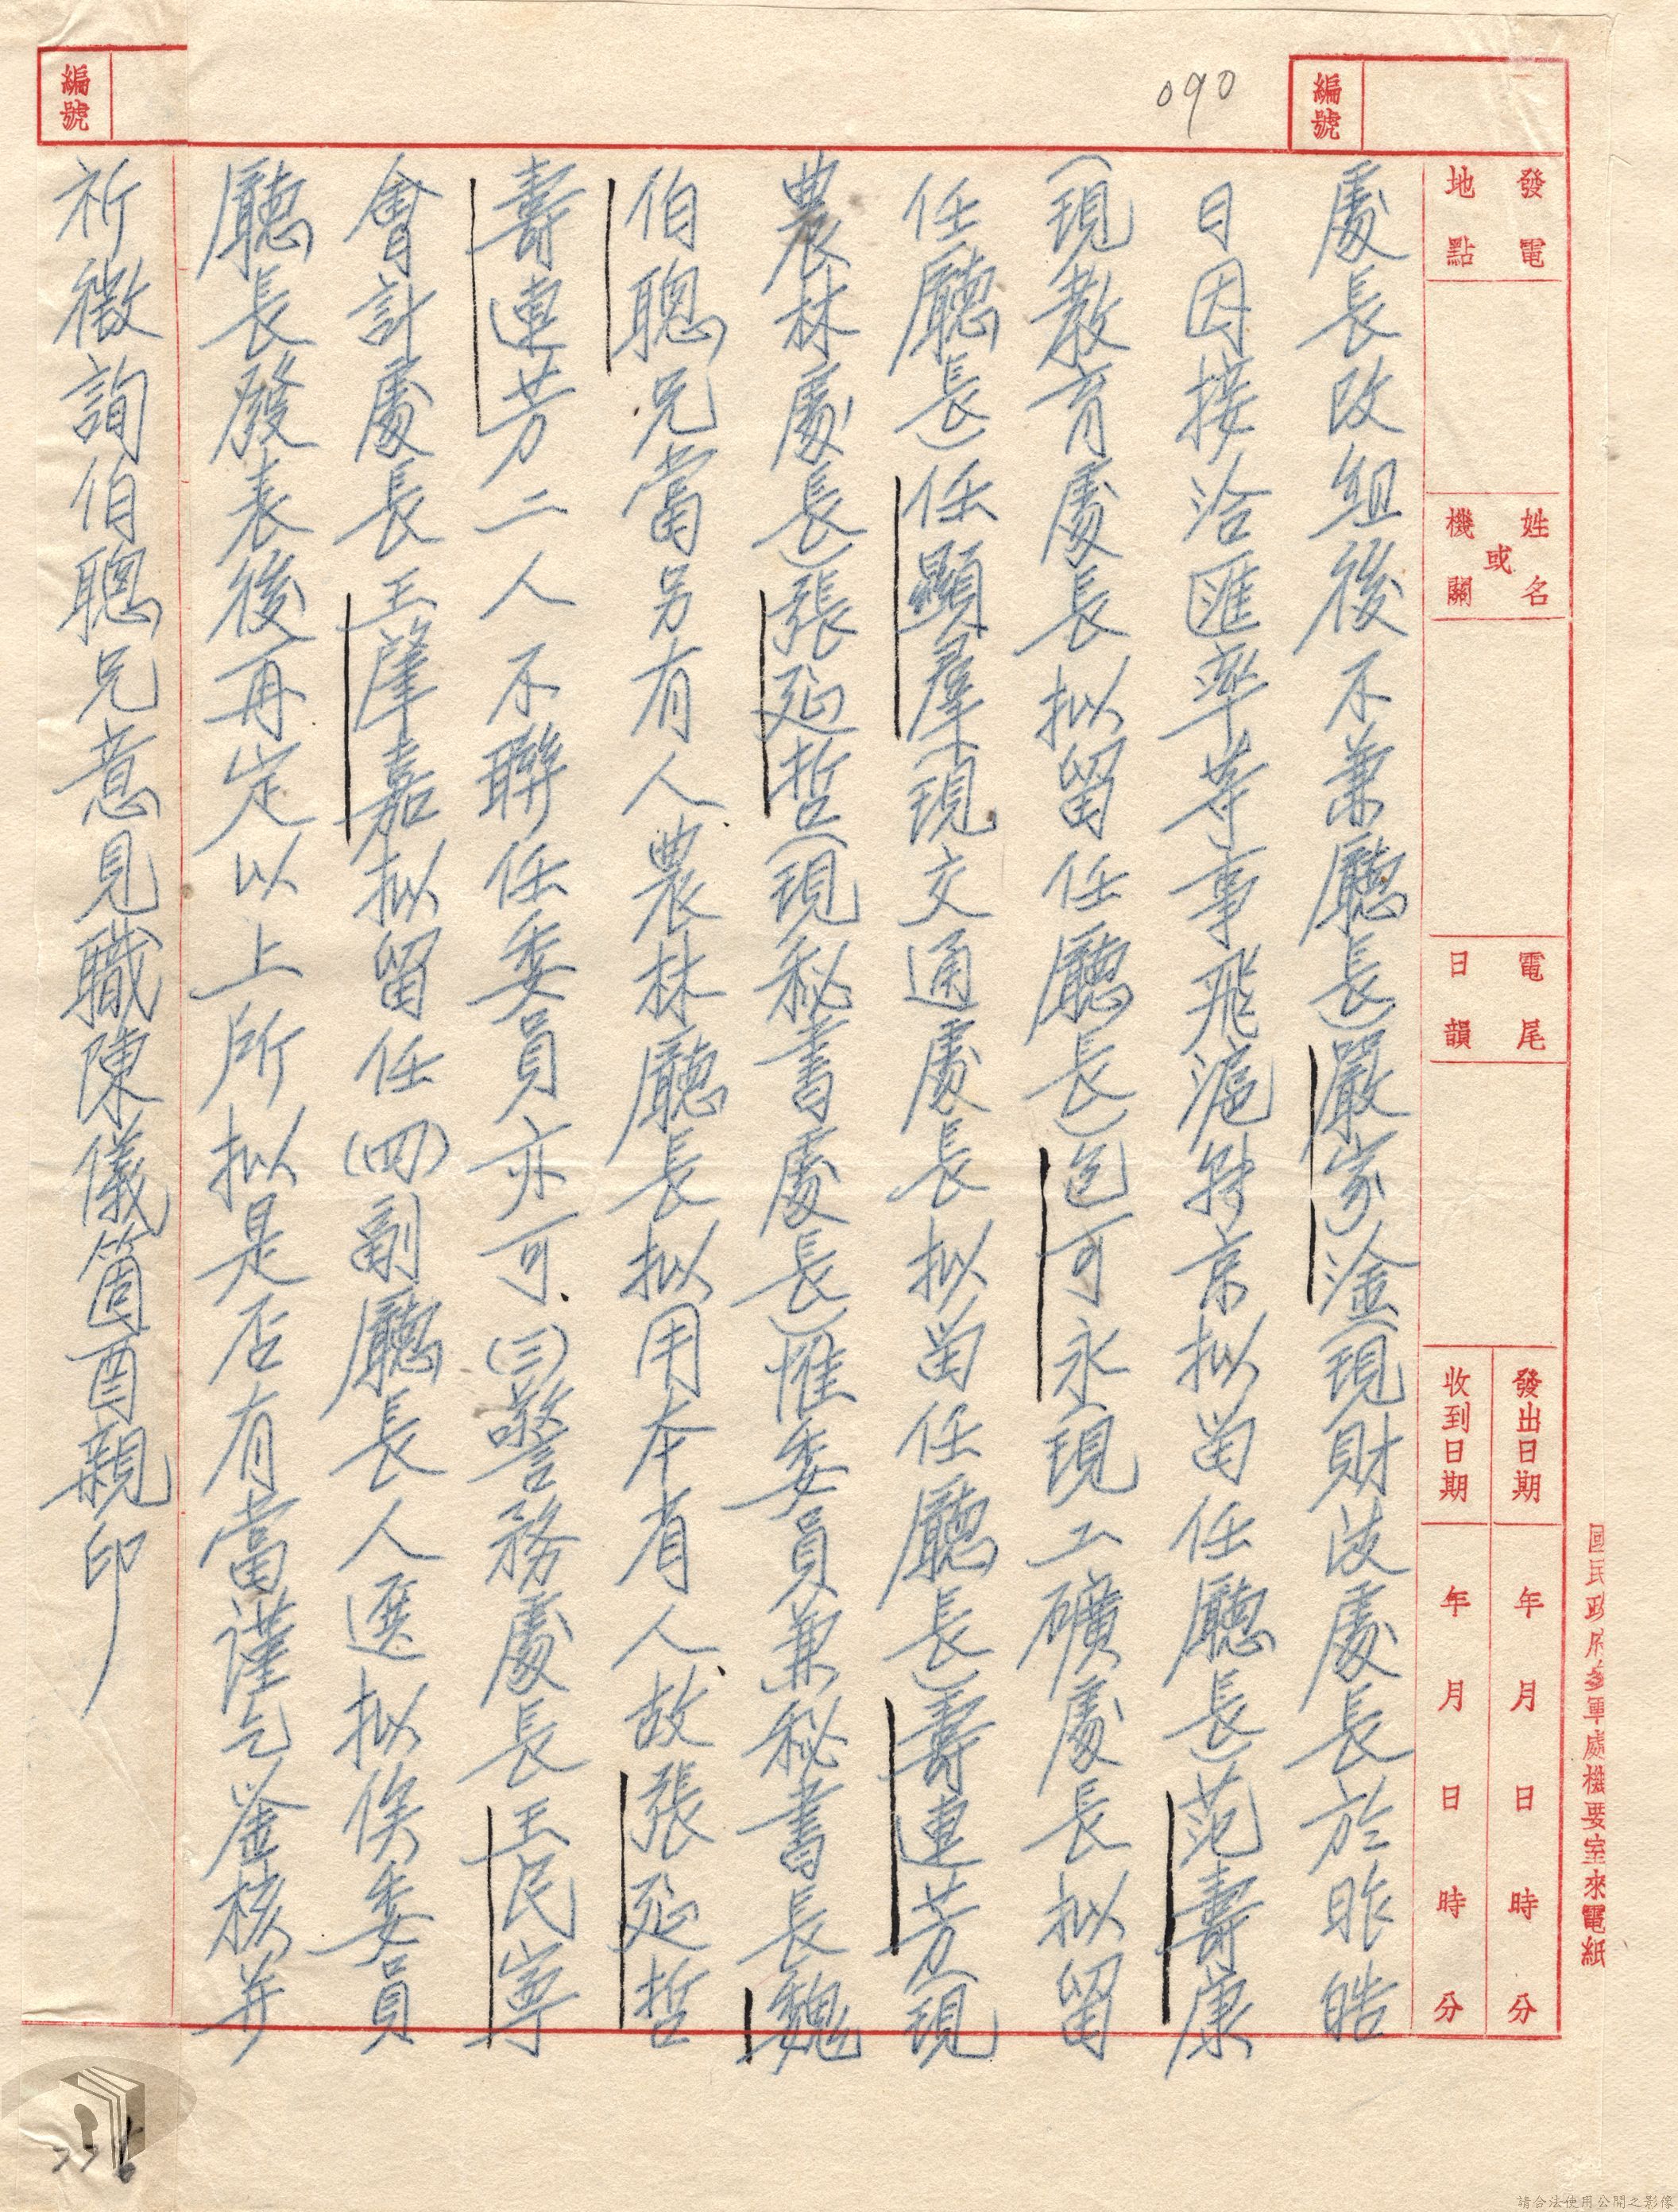 090
編號
編號
發電地點
姓名或機關
電尾日韻
發出日期 年 月 日 時 分
收到日期 年 月 日 時 分
國民政府參軍處機要室來電紙
處長改組後不兼廳長)嚴家淦(現財政處長於昨皓
日因接洽匯率等事飛滬轉京擬留任廳長)范壽康
(現教育處長擬留任廳長)包可永(現工礦處長擬留
任廳長)任顯羣(現交通處長擬留任廳長)壽連芳(現
農林處長)張延哲(現秘書處長)惟委員兼秘書長魏
伯聰兄當另有人農林廳長擬用本省人故張延哲
壽連芳二人不聯任委員亦可(三)警務處長王民寧
會計處長王肇嘉擬留任(四)副廳長人選擬俟委員
廳長發表後再定以上所擬是否有當謹乞鑒核并
祈徵詢伯聰兄意見職陳儀箇酉親印
請合法使用公開之影像